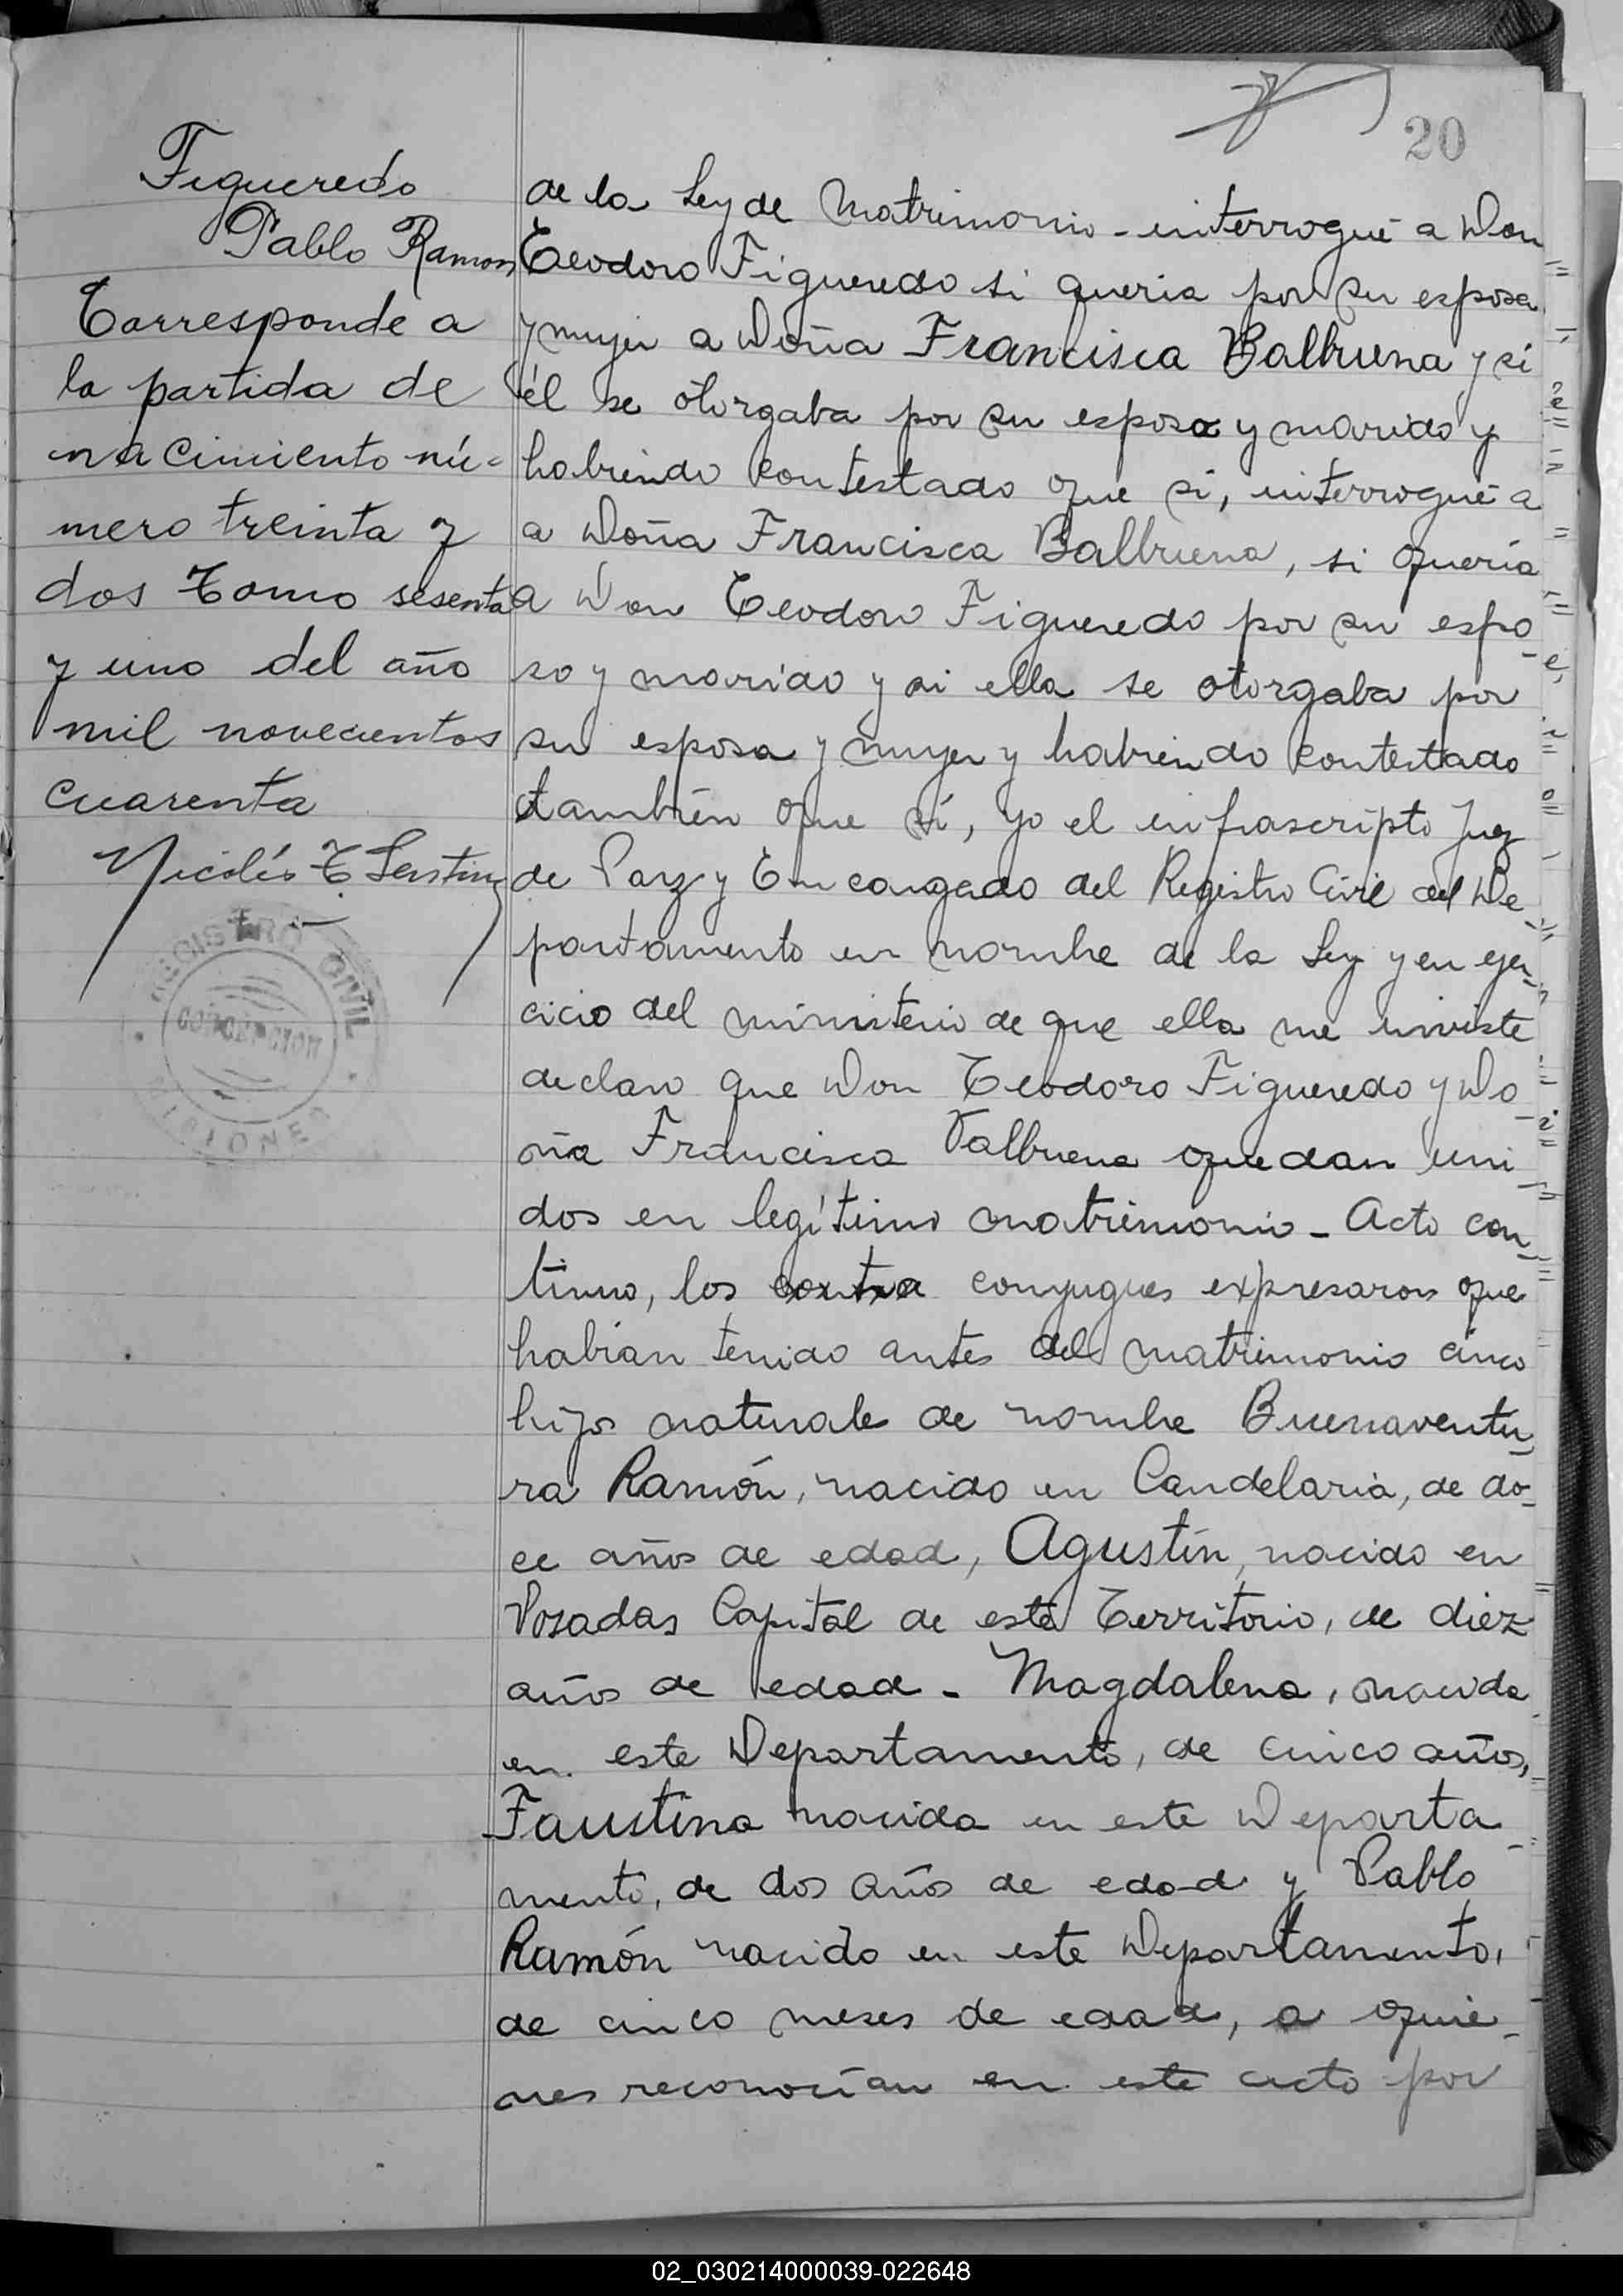 20
Figueredo
Pablo Ramon
Corresponde a
la partida de
nacimiento nú=
mero treinta y
dos Tomo sesenta
y uno del año
mil novecientos
cuarenta
Nicolás
REGISTRO CIVIL
CONCEPCION
MISIONES
de la Ley de Matrimonio - interrogué a Don
Teodoro Figueredo si queria por su esposa
y mujer a Doña Francisca Balbuena y si
él se otorgaba por su esposo y marido y
habiendo contestado que si, interrogué a
a Doña Francisca Balbuena, si quería
a Don Teodoro Figueredo por su espo-
so y marido y si ella se otorgaba por
su esposa y mujer y habiendo contestado
también que sí, yo el infrascripto Juez
de Paz y Encargado del Registro Civil del De-
partamento en nombre de la Ley y en ejer-
cicio del ministerio de que ella me inviste
declaro que Don Teodoro Figueredo y Do-
ña Francisca Valbuena quedan uni-
dos en legítimo matrimonio - Acto con-
tinuo, los contra conyugues expresaron que
habían tenido antes del matrimonio cinco
hijos naturales de nombre Buenaventu-
ra Ramón, nacido en Candelaria, de do-
ce años de edad, Agustín, nacido en
Posadas Capital de este Territorio, de diez
años de edad - Magdalena, nacida
en este Departamento, de cinco años,
Faustina nacida en este Departa-
mento, de dos años de edad y Pablo
Ramón nacido en este Departamento,
de cinco meses de edad, a quie-
nes reconocían en este acto por
02_030214000039-022648